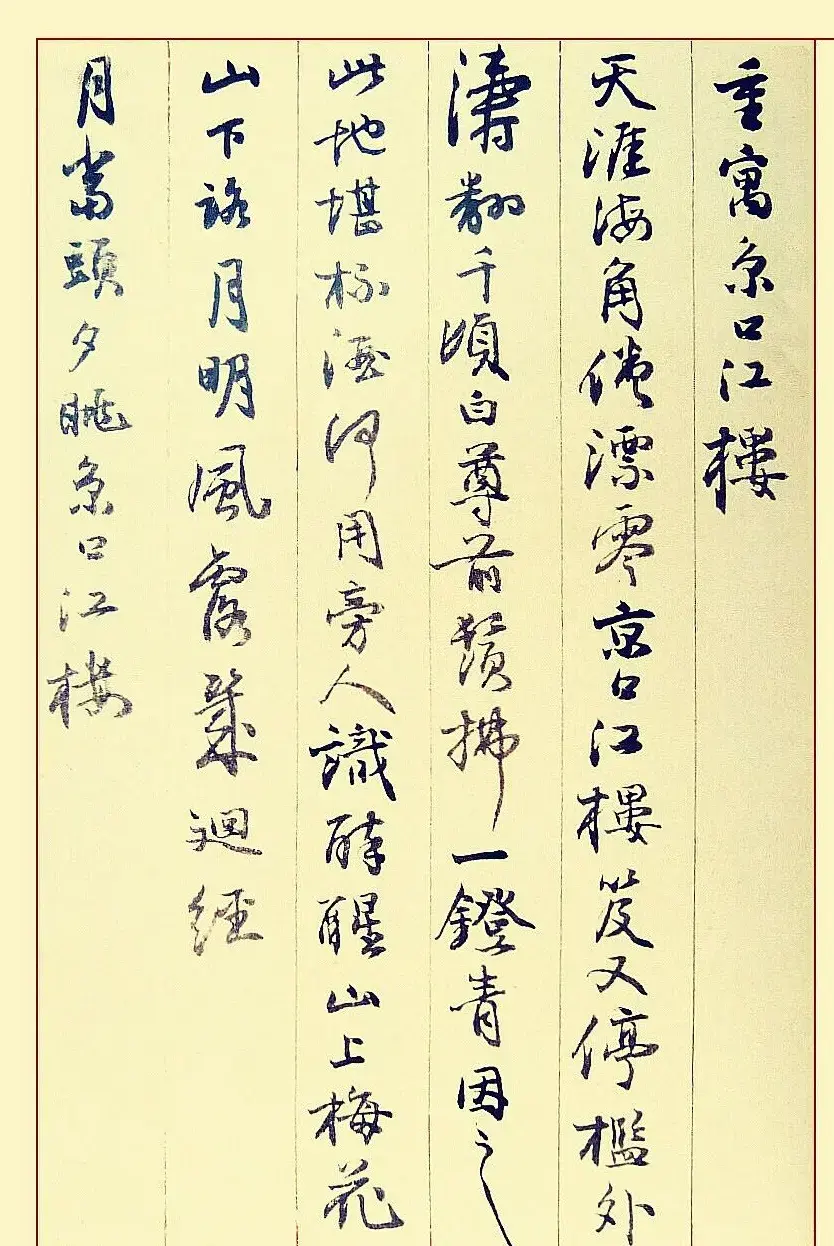 重寓京口江樓
天涯海角倦漂零京口江樓笈又停檻外
濤翻千頃白尊前鬢拂一鐙青因之
此地堪桮酒何用旁人識醉醒山上梅花
山下路月明風露幾迴經
月當頭夕眺京口江樓